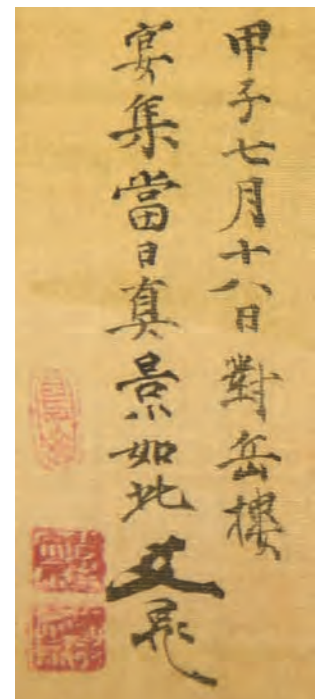 甲子七月十八日對岳樓
宴集當日真景如此 文晁